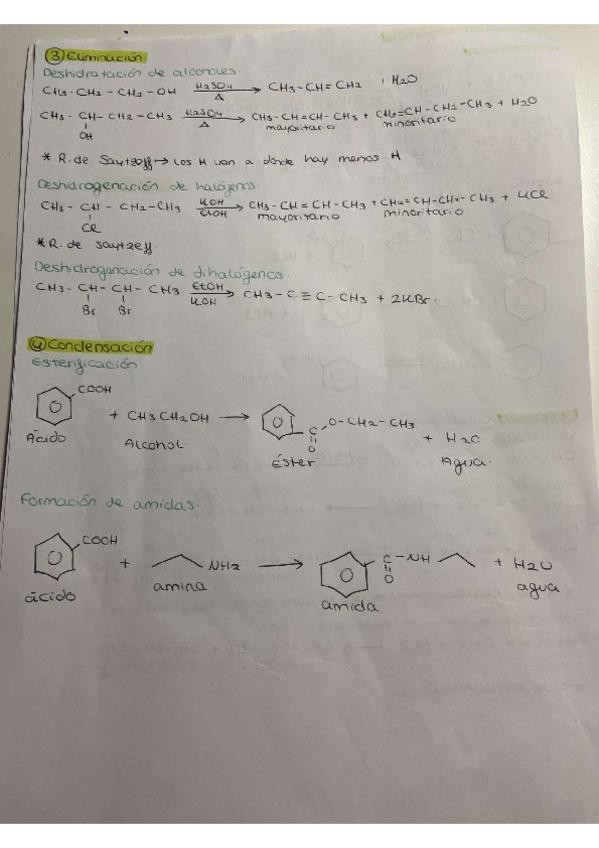 ③ Eliminación
Deshidratación de alcoholes
CH3-CH2-CH2-OH H2SO4 Δ → CH3-CH=CH2 + H2O
CH3-CH-CH2-CH3 H2SO4 Δ → CH3-CH=CH-CH3 + CH2=CH-CH2-CH3 + H2O
OH mayoritario minoritario
* R. de Saytzeff → Los H van a dónde hay menos H
Deshidrogenación de halógenos
CH3-CH-CH2-CH3 KOH EtOH → CH3-CH=CH-CH3 + CH2=CH-CH2-CH3 + KCl
Cl mayoritario minoritario
* R. de Saytzeff.
Deshidrogenación de dihalógenos.
CH3-CH-CH-CH3 EtOH KOH → CH3-C≡C-CH3 + 2KBr
Br Br
④ Condensación
Esterificación
COOH
+ CH3CH2OH → C O-CH2-CH3 + H2O
O
Ácido Alcohol Éster Agua.
Formación de amidas.
COOH
+ NH2 → C-NH + H2O
O
ácido amina amida agua